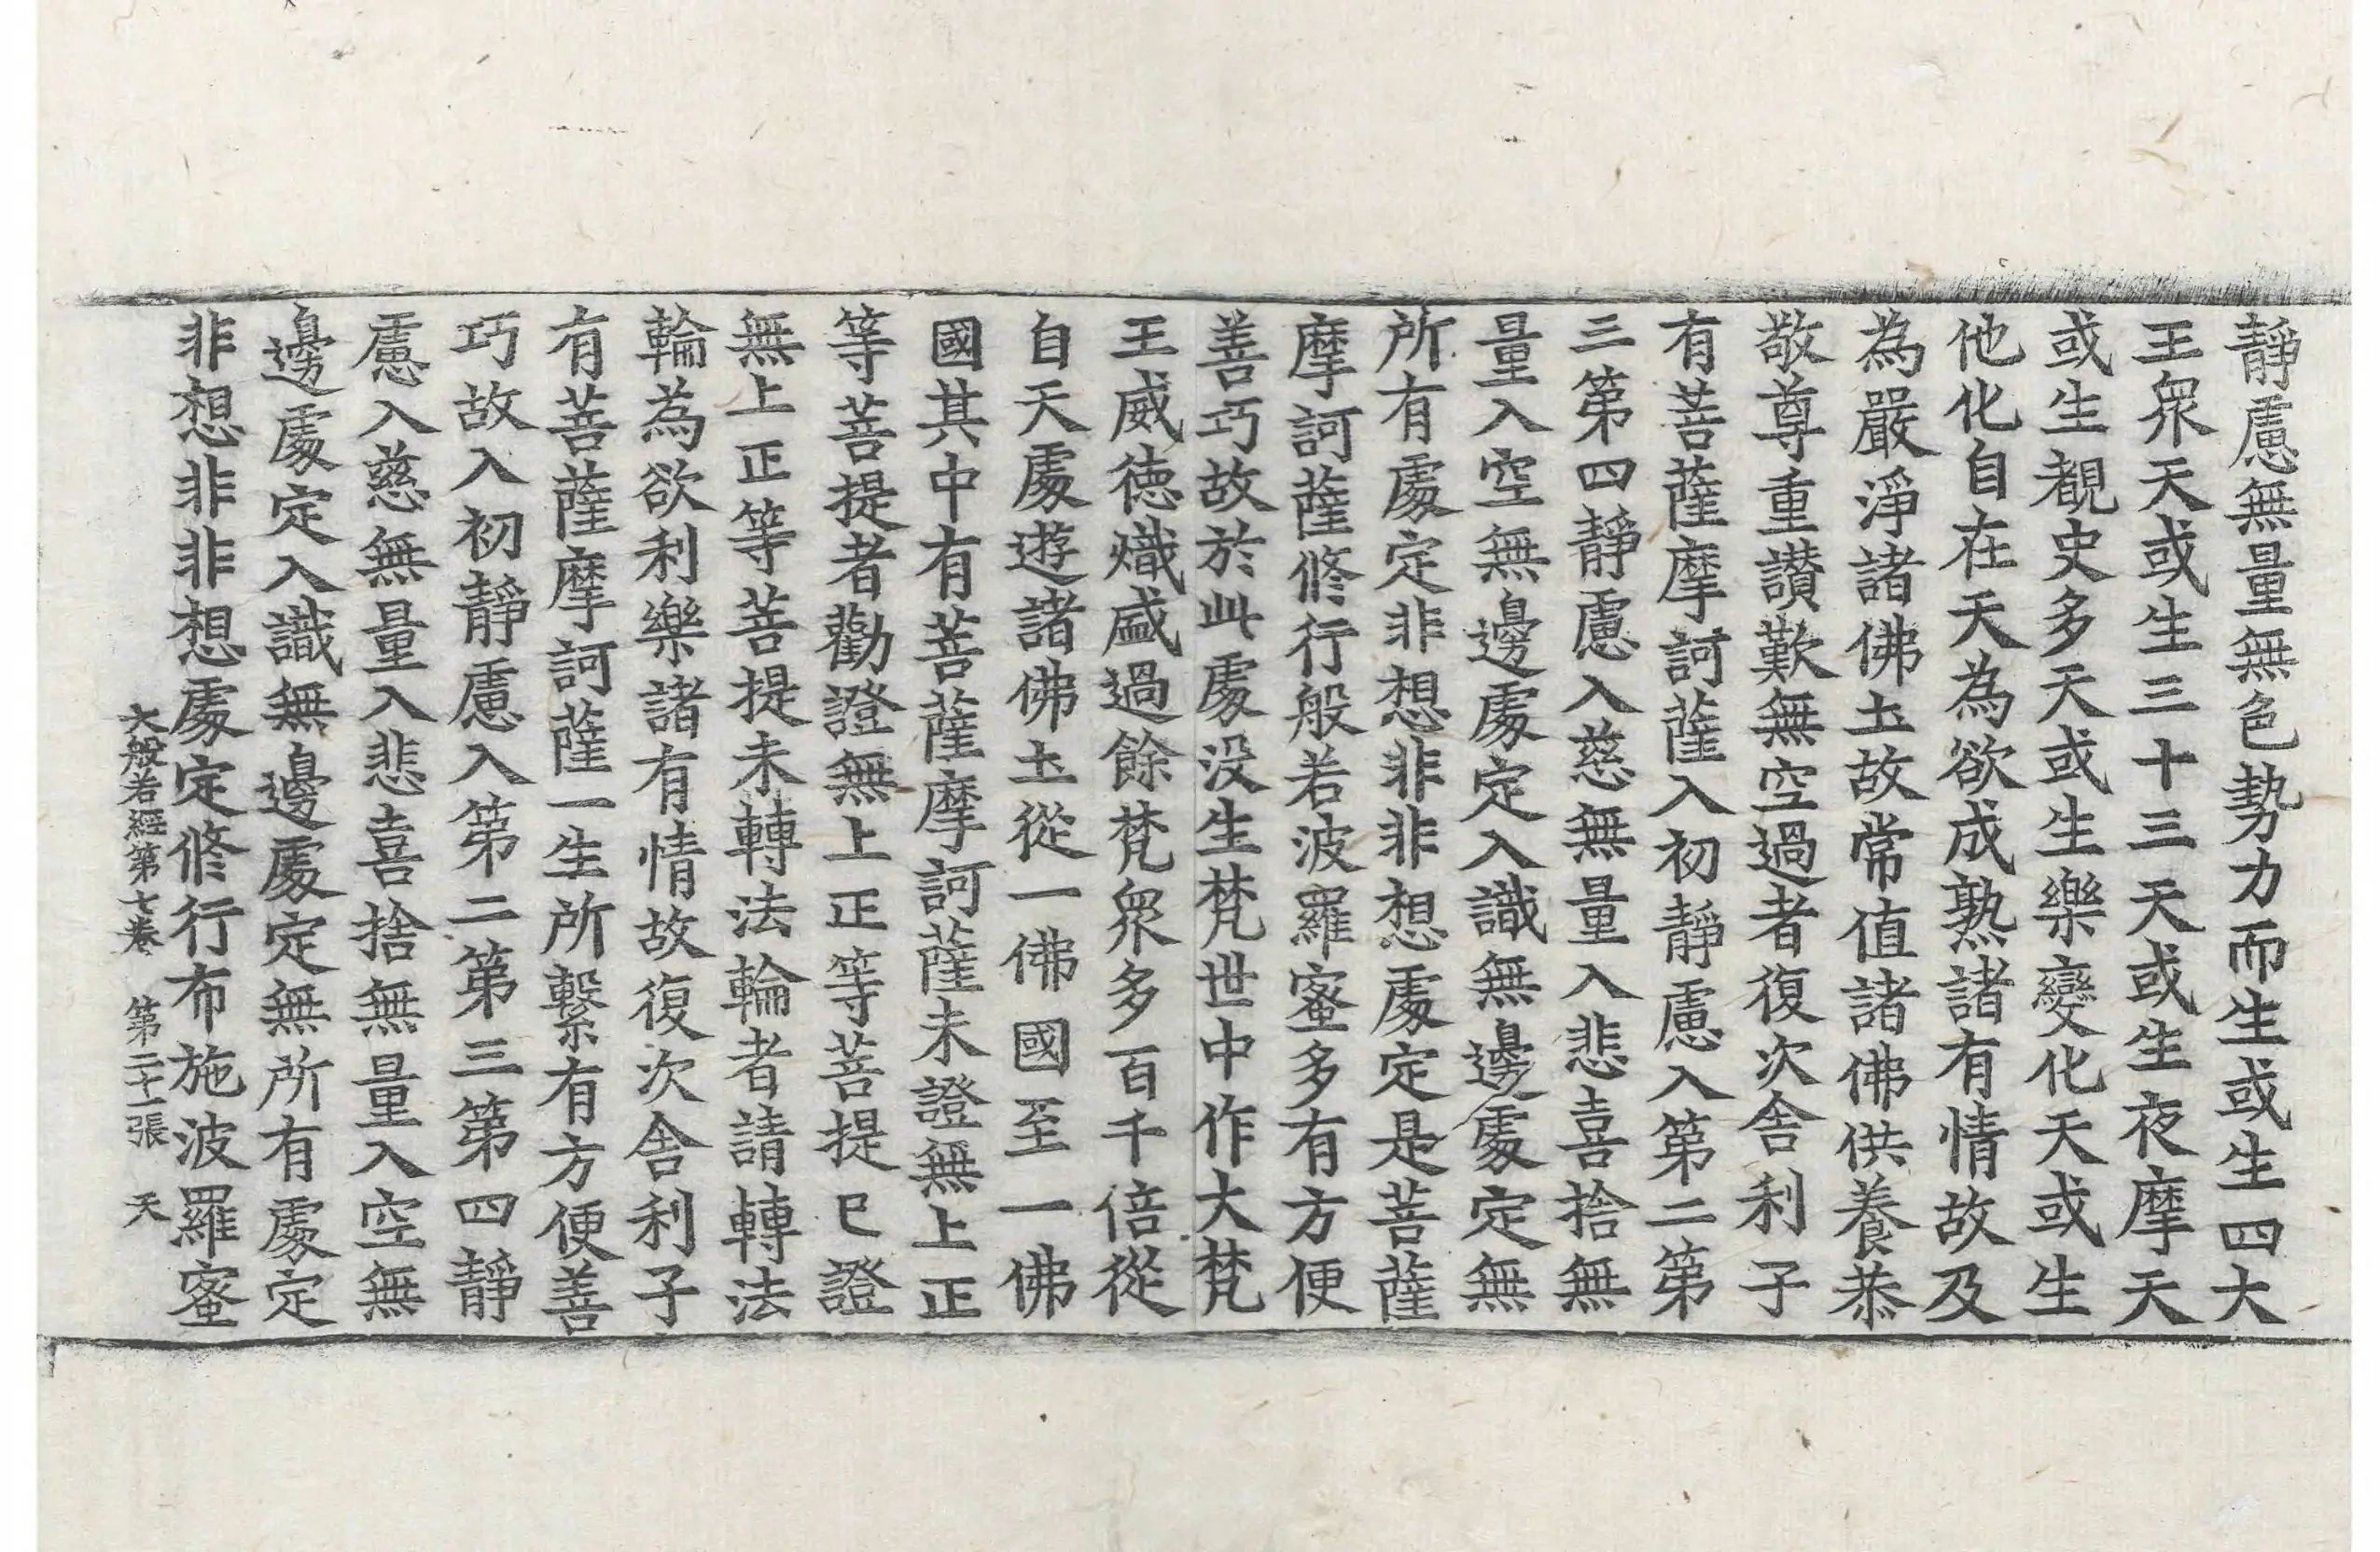 靜慮無量無色勢力而生或生四大
王衆天或生三十三天或生夜摩天
或生覩史多天或生樂變化天或生
他化自在天為欲成熟諸有情故及
為嚴淨諸佛土故常值諸佛供養恭
敬尊重讃歎無空過者復次舍利子
有菩薩摩訶薩入初靜慮入第二第
三第四靜慮入慈無量入悲喜捨無
量入空無邊處定入識無邊處定無
所有處定非想非非想處定是菩薩
摩訶薩修行般若波羅蜜多有方便
善巧故於此處没生梵世中作大梵
王威徳熾盛過餘梵衆多百千倍從
自天處遊諸佛土從一佛國至一佛
國其中有菩薩摩訶薩未證無上正
等菩提者勸證無上正等菩提已證
無上正等菩提未轉法輪者請轉法
輪為欲利樂諸有情故復次舍利子
有菩薩摩訶薩一生所繫有方便善
巧故入初靜慮入第二第三第四靜
慮入慈無量入悲喜捨無量入空無
邊處定入識無邊處定無所有處定
非想非非想處定修行布施波羅蜜
大般若經第七卷　第二十一張　天